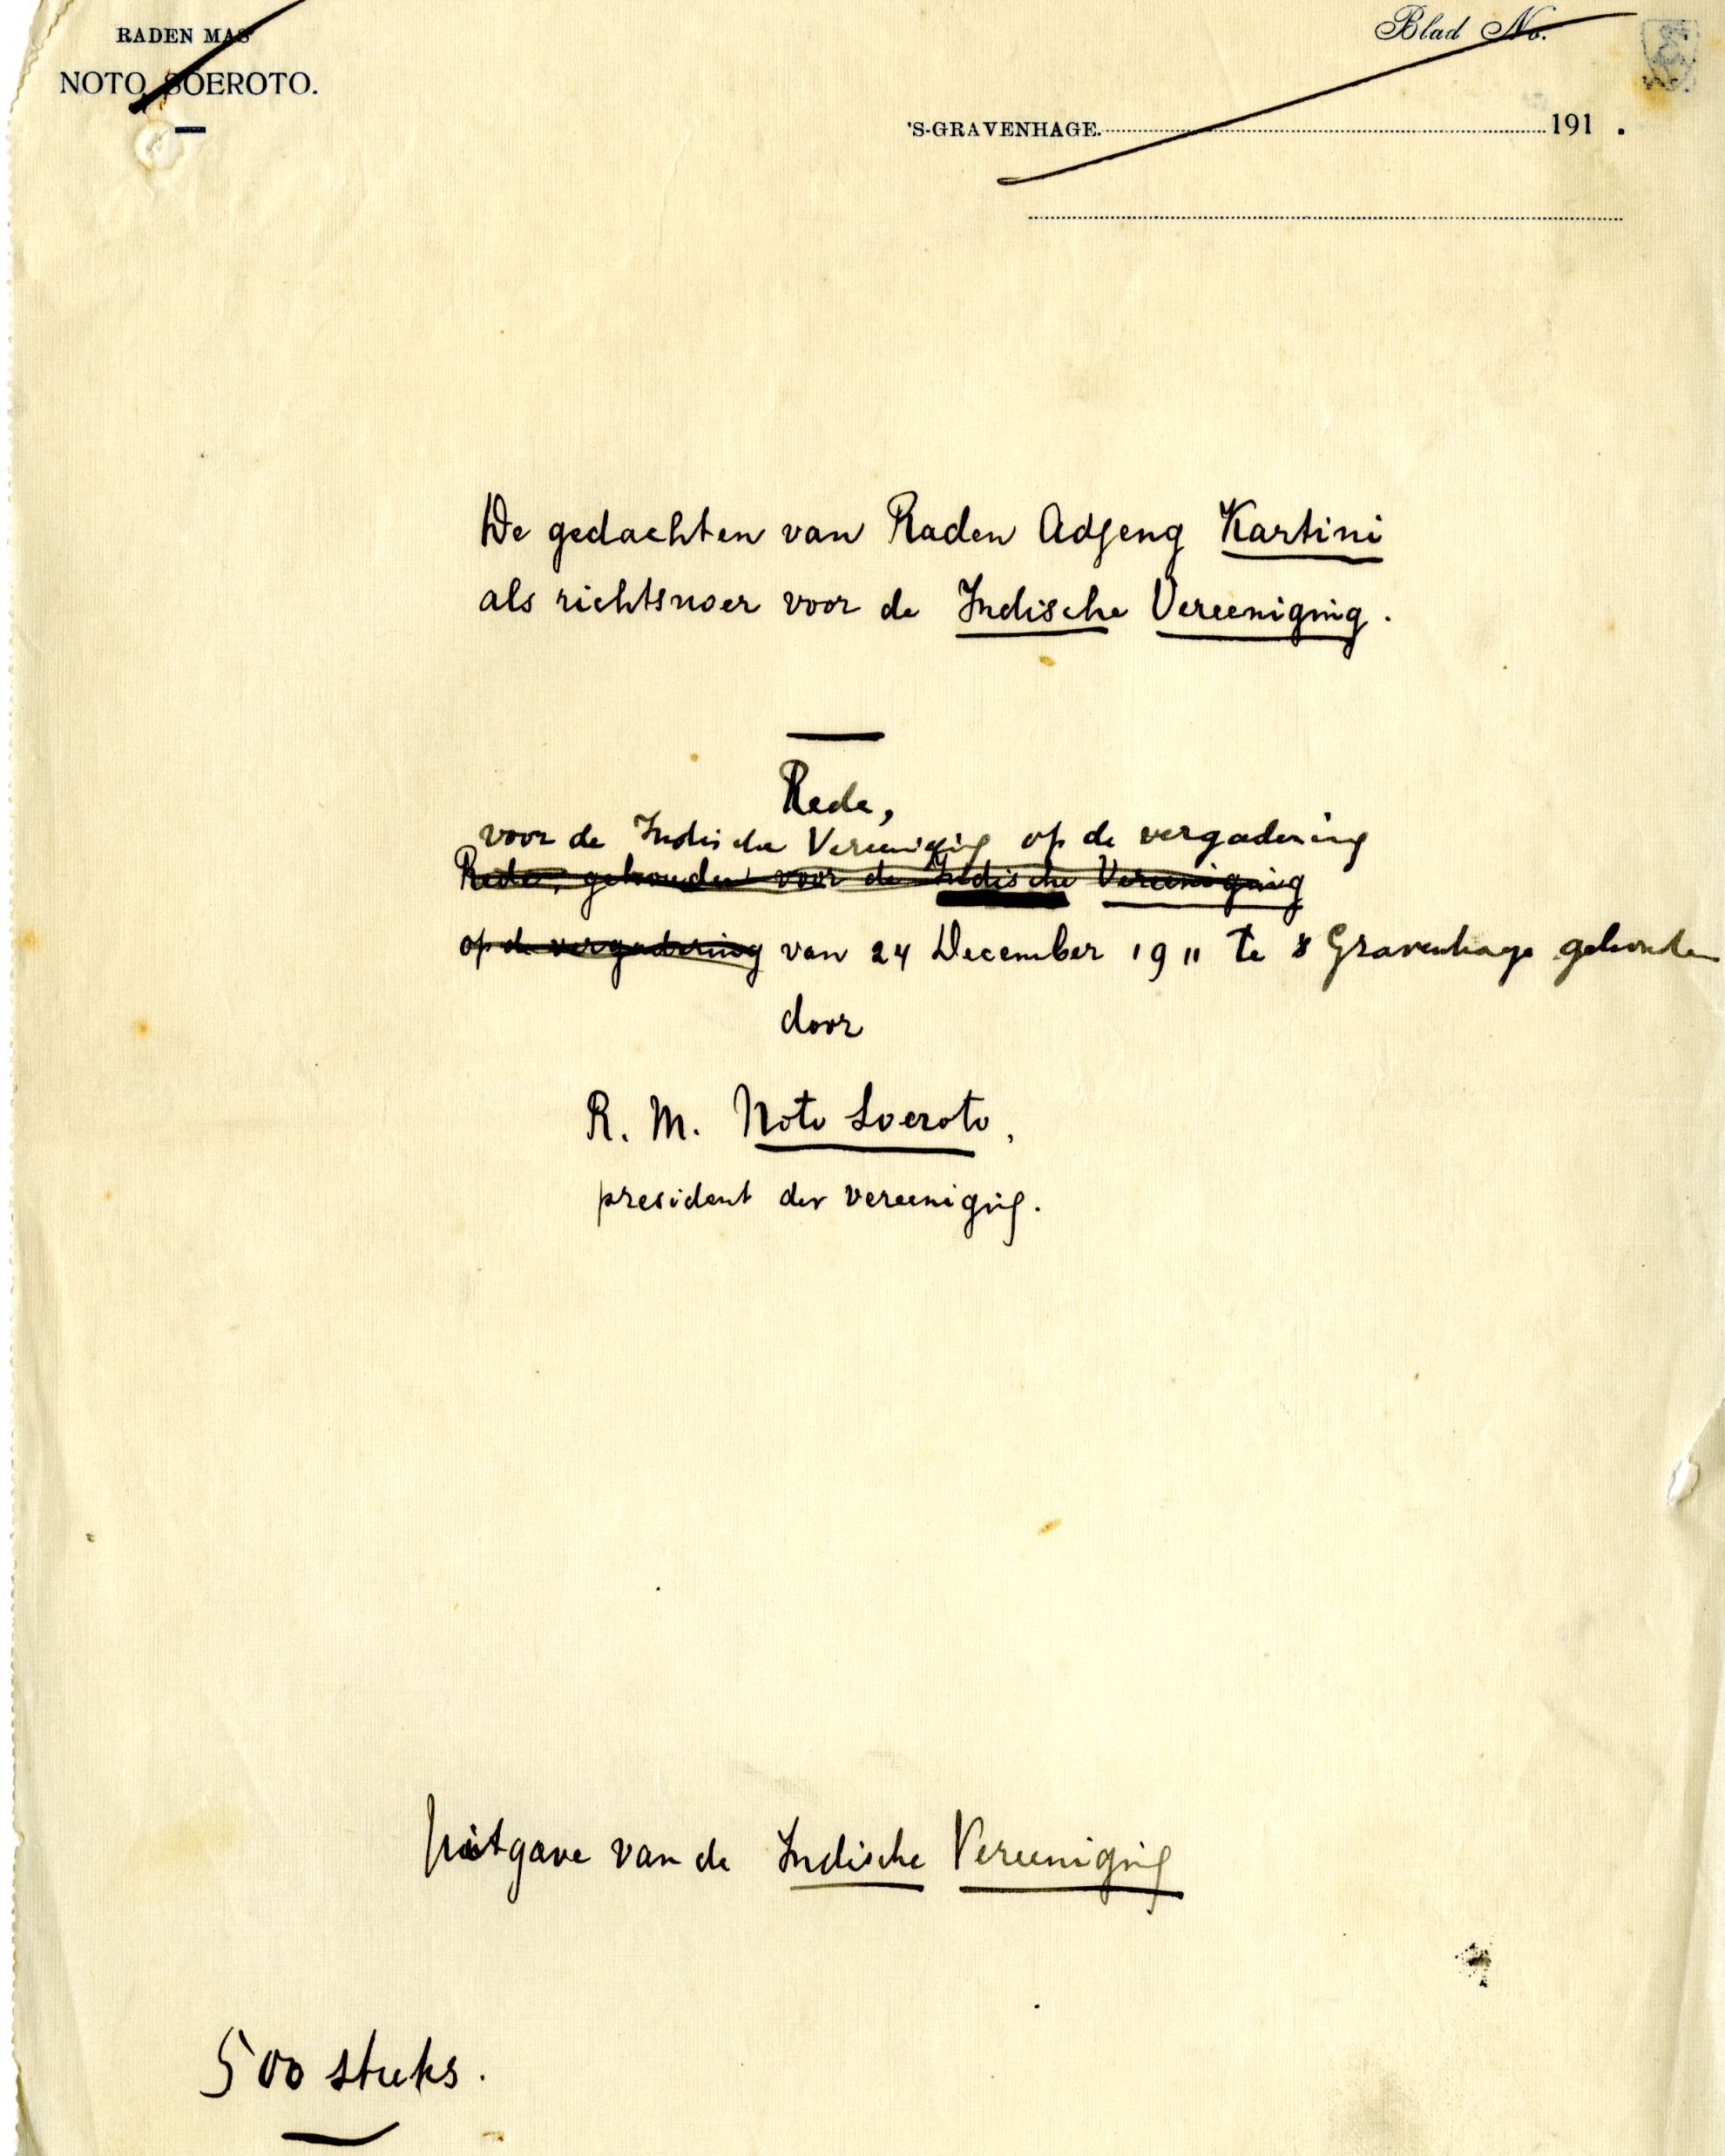 RADEN MAS
NOTO SOEROTO.
Blad No.
'S-GRAVENHAGE. 191 .
De gedachten van Raden Adjeng Kartini
als richtsnoer voor de Indische Vereeniging.
Rede,
voor de Indische Vereeniging op de vergadering
Rede, gehouden voor de Indische Vereeniging
op de vergadering van 24 December 1911 te 's Gravenhage gehouden
door
R. M. Noto Soeroto,
president der vereeniging.
Uitgave van de Indische Vereeniging
500 stuks.